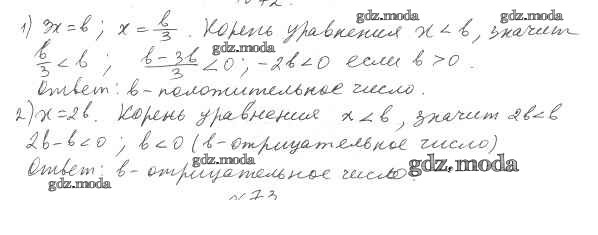 1) 3x = b ; x = b/3 . Корень уравнения x < b, значит
b/3 < b ; (b-3b)/3 < 0 ; -2b < 0 если b > 0 .
Ответ: b - положительное число.
2) x = 2b. Корень уравнения x < b, значит 2b < b
2b - b < 0 ; b < 0 (b - отрицательное число)
Ответ: b - отрицательное число.
gdz.moda
gdz.moda
gdz.moda
gdz.moda
gdz.moda
gdz.moda